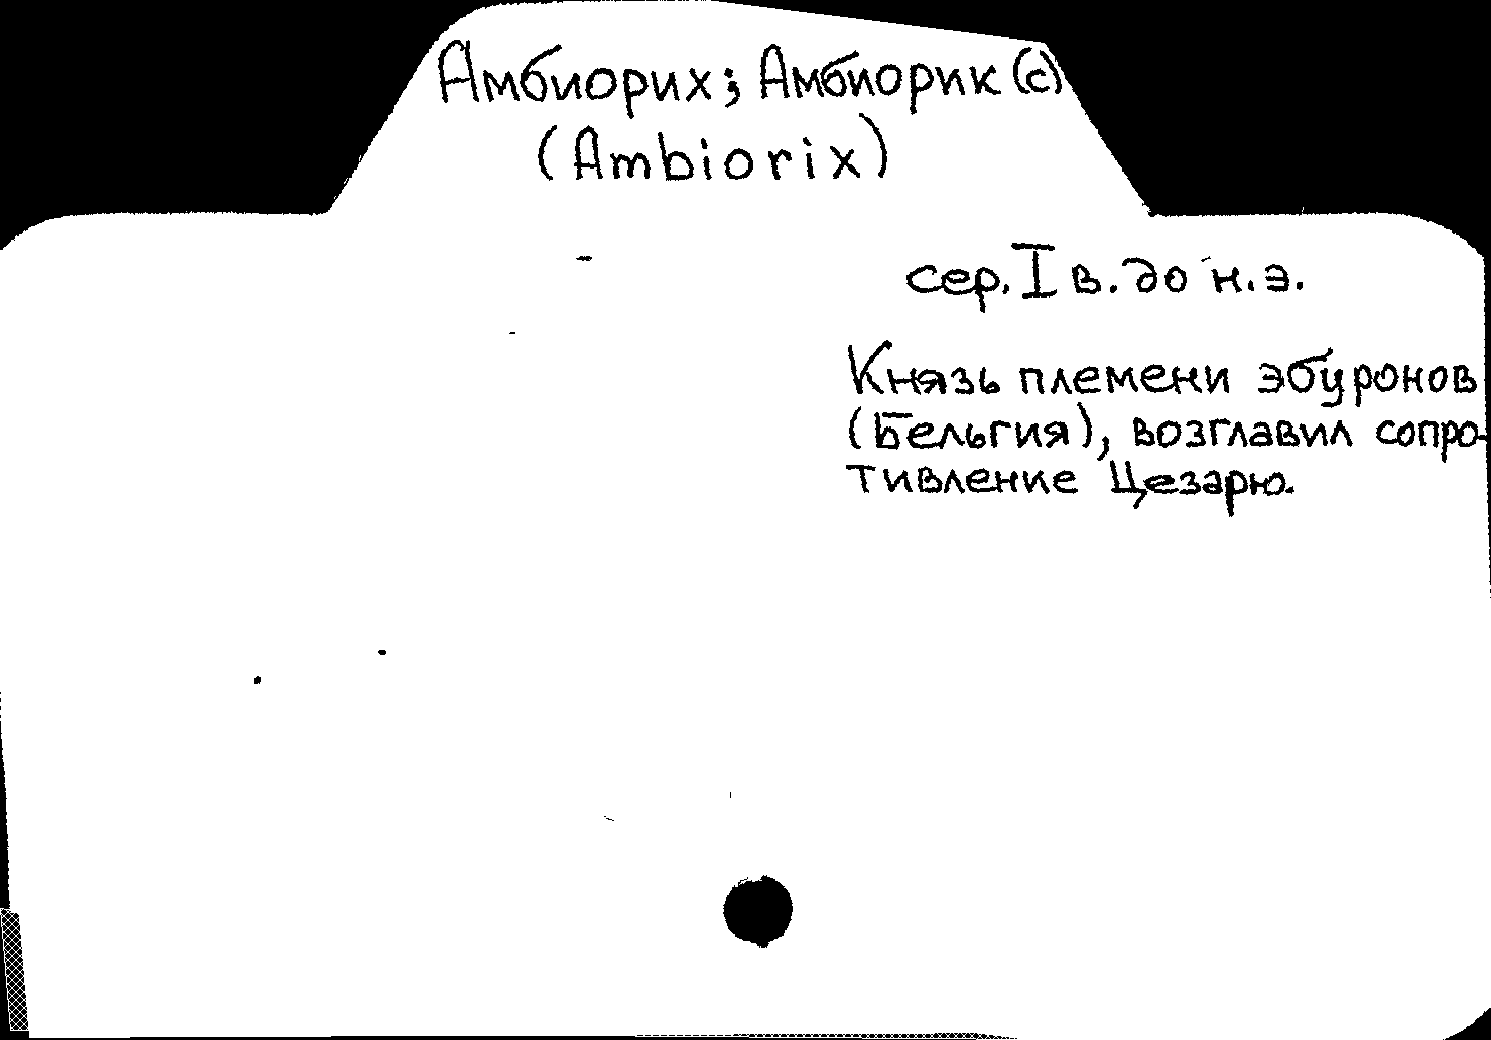 Амбиорих; Амбиорик(с)
(Ambiorix)
сер. I в. до н.э.
Князь племени эбуронов
(Бельгия), возглавил сопро-
тивление Цезарю.